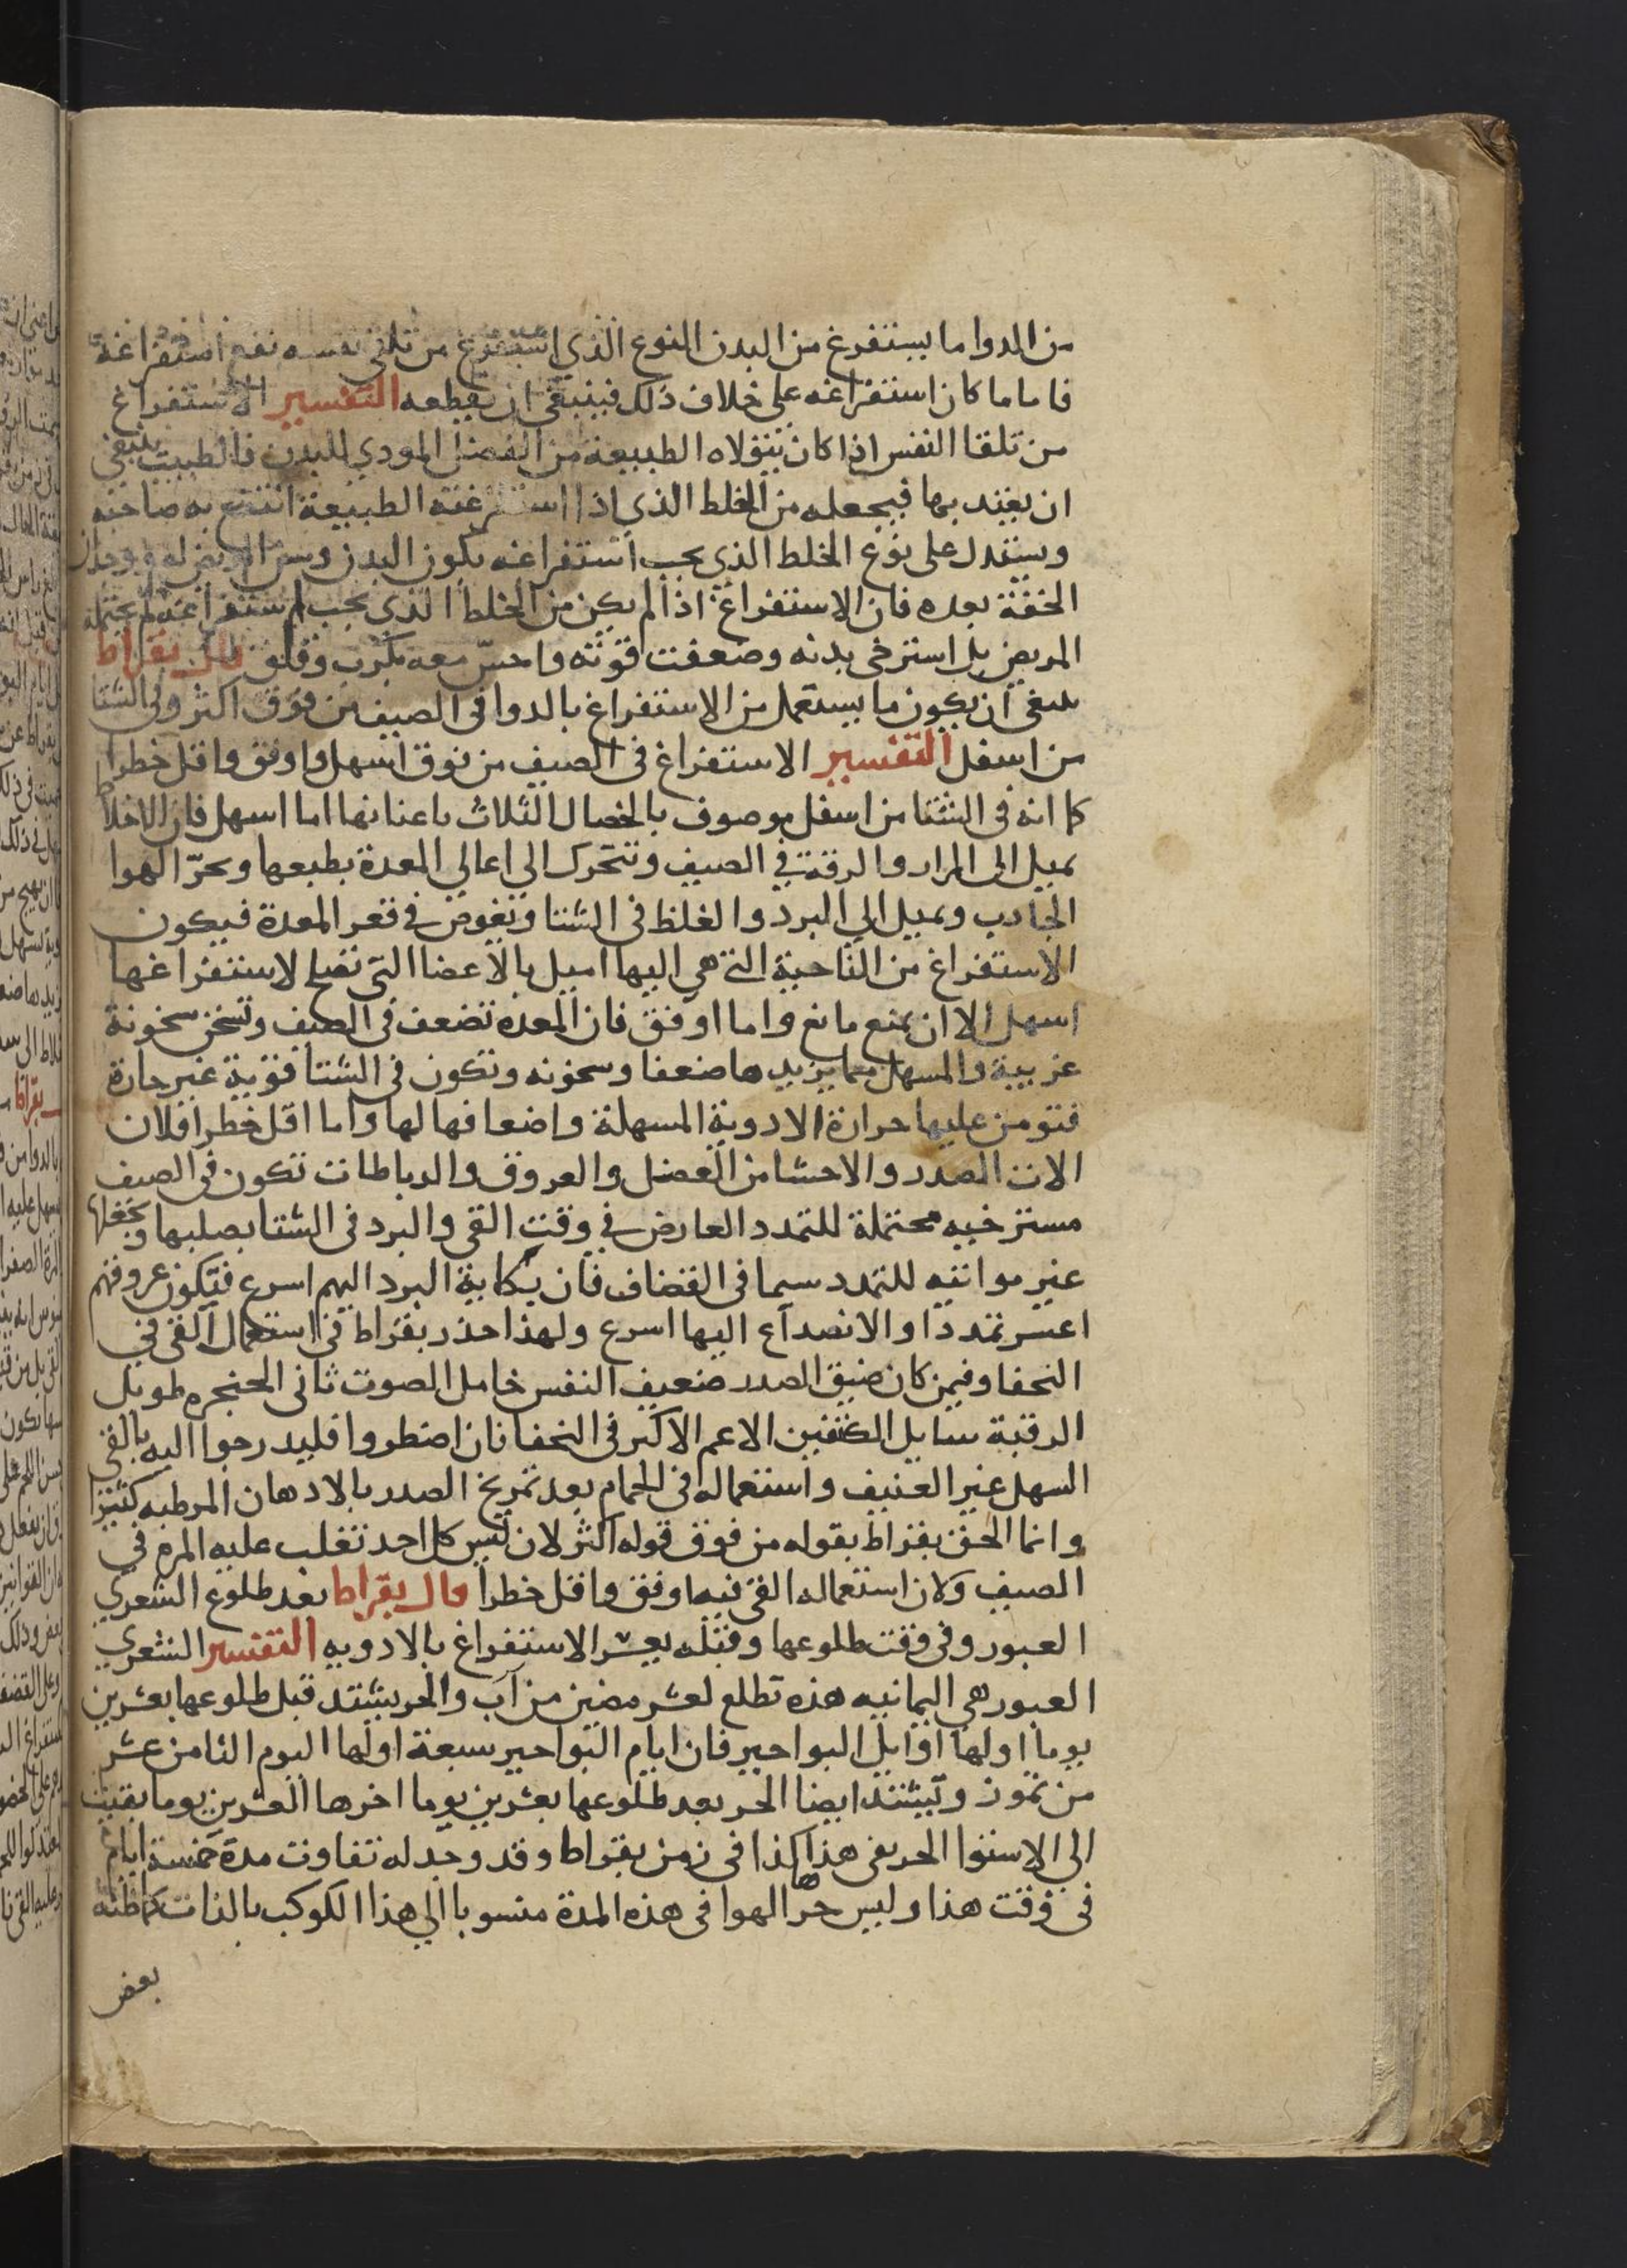 من الدوا ما يستفرغ من البدن النوع الذي استفرغ من تلقي نفسه نفع استفراغه
فاما ما كان استفراغه على خلاف ذلك فينبغي ان يقطعه التفسير الاستفراغ
من تلقا النفس اذا كان تتولاه الطبيعة من الفضل المودي للبدن فالطبيب ينبغي
ان يقتدي بها فيجعله من الخلط الذي اذا استفرغته الطبيعة انتفع به صاحبه
ويستدل على نوع الخلط الذي يجب استفراغه بلون البدن وسن ووجدان
الخفة بعده فان الاستفراغ اذا لم يكن من الخلط الذي يجب استفراغه لم يحتمله
المريض بل استرخى بدنه وضعفت قوته واحسّ معه بكرب وقلق قال بقراط
ينبغي ان يكون ما يستعمل من الاستفراغ بالدوا في الصيف من فوق اكثر وفي الشتا
من اسفل التفسير الاستفراغ في الصيف من فوق اسهل واوفق واقل خطرا
كما انه في الشتا من اسفل موصوف بالخصال الثلاث باعيانها اما اسهل فلان الاخلاط
تميل الى المرار والرقة في الصيف وتتحرك الي اعالي المعدة بطبعها وبحرّ الهوا
الجاذب وتميل الي البرد والغلظ في الشتا وتغوص في قعر المعدة فيكون
الاستفراغ من الناحية التي هي اليها اميل بالاعضا التي تصلح لاستفراغها
اسهل الا ان يمنع مانع واما اوفق فان المعده تضعف في الصيف وتسخن سخونة
غريبة والمسهل مما يزيدها ضعفا وسخونه وتكون في الشتا قوية غير حارة
فتومن عليها حرارة الادوية المسهلة واضعافها لها واما اقل خطرا فلان
الات الصدر والاحشا من العضل والعروق والرباطات تكون في الصيف
مسترخيه محتملة للتمدد العارض في وقت القي والبرد في الشتا يصلبها ويجعلها
غير مواتيه للتمدد سيما في القضاف فان نكاية البرد اليهم اسرع فتكون عروقهم
اعسر تمددا والانصداع اليها اسرع ولهذا حذر بقراط في استعمال القي في
النحفا وفيمن كان ضيق الصدر ضعيف النفس خامل الصوت ناتى الحنجره طويل
الرقبة سايل الكتفين الاعم الاكبر في النحفا فان اضطروا فليدرجوا اليه بالقي
السهل غير العنيف واستعماله في الحمام بعد تمريخ الصدر بالادهان المرطبه كثيرا
وانما الحق بقراط بقوله من فوق قوله اكثر لان ليس كل احد تغلب عليه المره في
الصيف ولان استعماله القي فيه اوفق واقل خطرا قال بقراط بعد طلوع الشعري
العبور وفي وقت طلوعها وقبله يعسر الاستفراغ بالادويه التفسير الشعري
العبور هي اليمانيه هذه تطلع لعشر مضين من آب والحر يشتد قبل طلوعها بعشرين
يوما اولها اوايل البواحير فان ايام البواحير سبعة اولها اليوم الثامن عشر
من تموز ويشتد ايضا الحر بعد طلوعها بعشرين يوما اخرها العشرين يوما بقيت
الي الاستوا الخريفي هذا كذا في زمن بقراط وقد وجد له تفاوت مدة خمسة ايام
في وقت هذا وليس حر الهوا في هذه المدة منسوبا الي هذا الكوكب بالذات كما ظنه
بعض